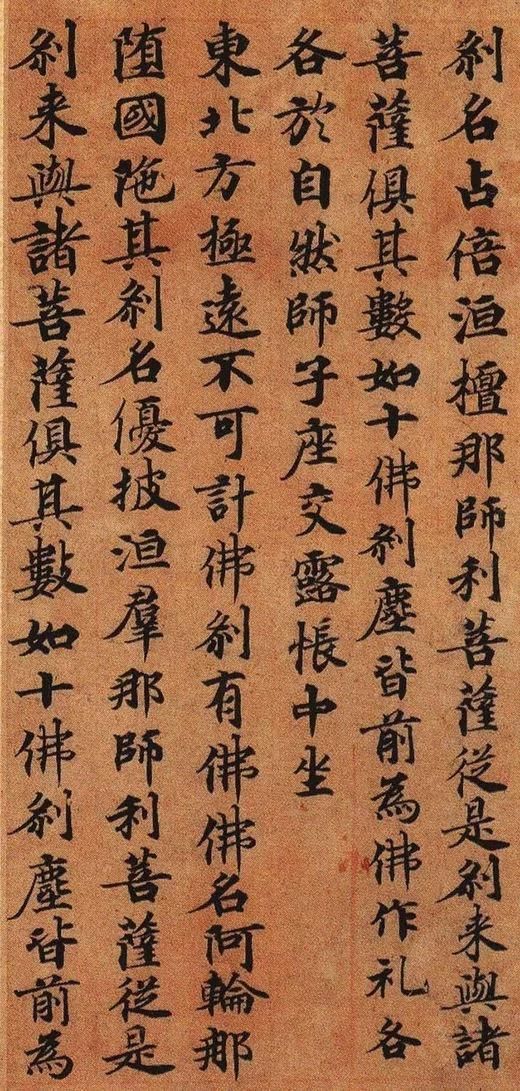 刹名占倍洹檀那師利菩薩従是刹来與諸
菩薩俱其數如十佛刹塵皆前為佛作礼各
各於自然師子座交露帳中坐
東北方極遠不可計佛刹有佛佛名阿輪那
堕國陁其刹名優披洹羣那師利菩薩従是
刹来與諸菩薩俱其數如十佛刹塵皆前為